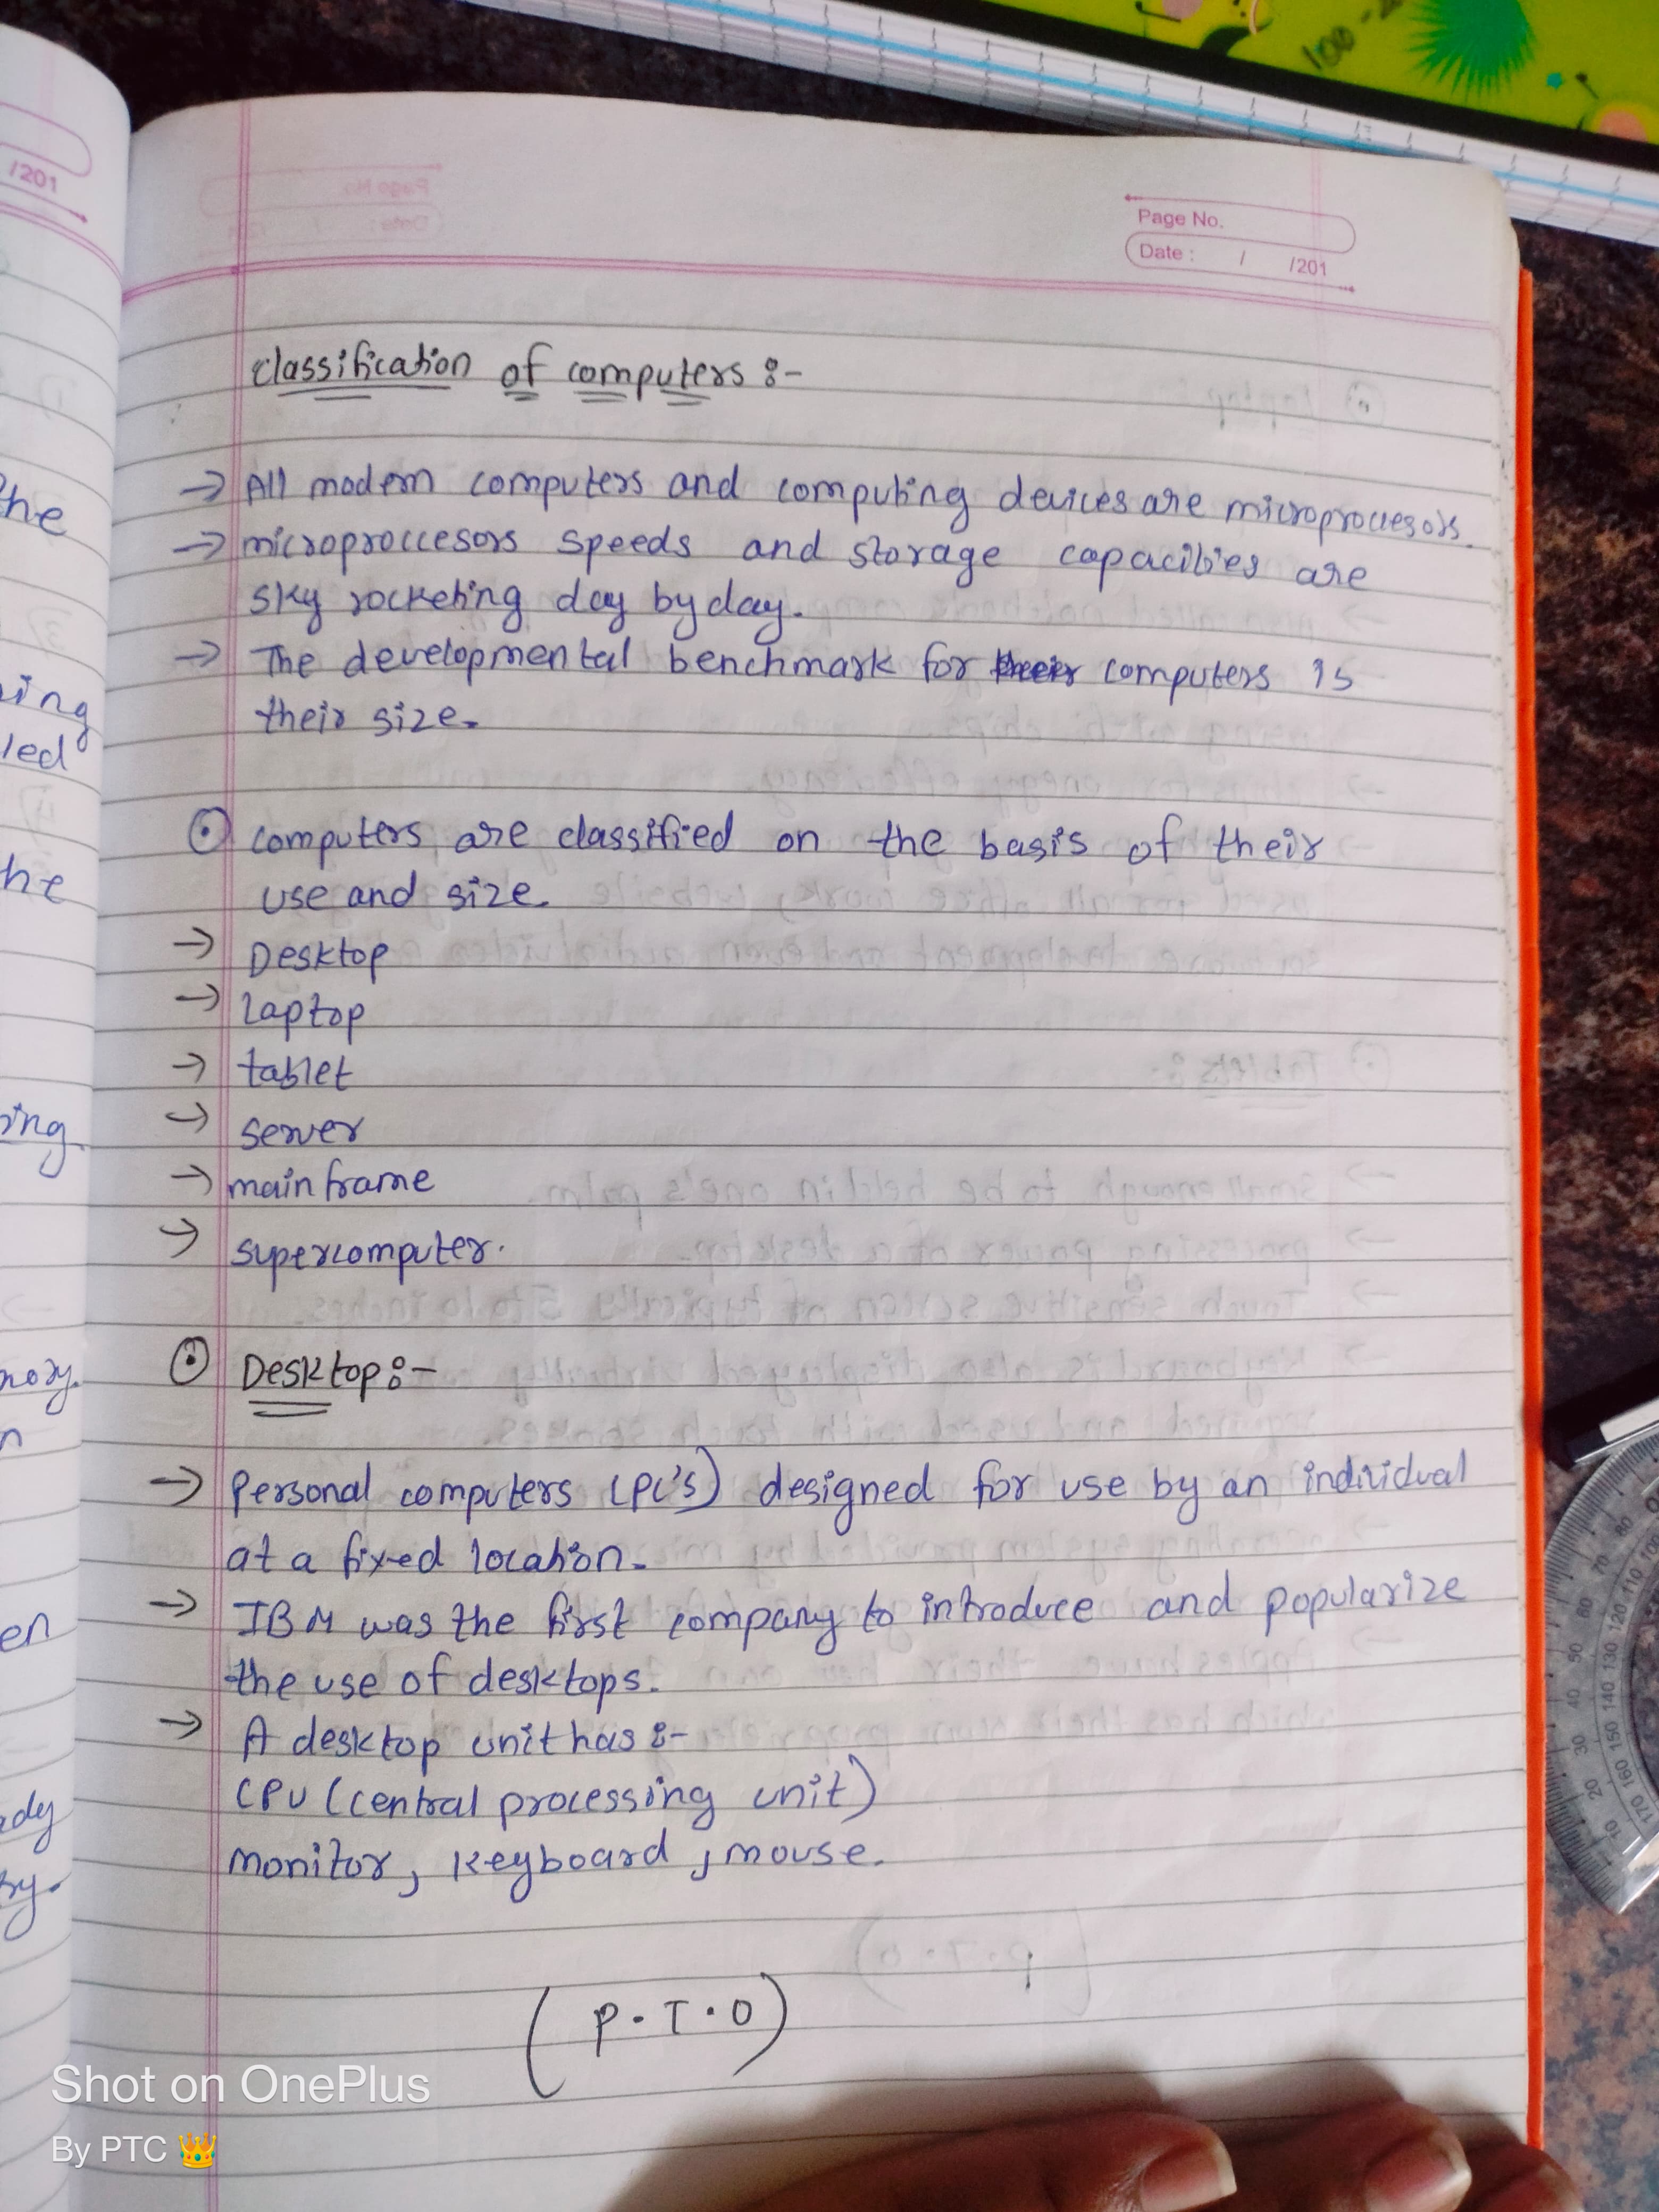 /201
Page No.
Date : / /201
100
classification of computers :-
→ All modern computers and computing devices are microproccesors.
→ microproccesors speeds and storage capacities are
sky rocketing day by day.
→ The developmental benchmark for their computers is
their size.
⊙ computers are classified on the basis of their
use and size.
→ Desktop
→ laptop
→ tablet
→ server
→ mainframe
→ supercomputer.
⊙ Desktop :-
→ personal computers (PC's) designed for use by an individual
at a fixed location.
→ IBM was the first company to introduce and popularize
the use of desktops.
→ A desktop unit has :-
CPU (central processing unit)
monitor, keyboard, mouse.
(P.T.O)
he
ing
led
he
ing
n
en
Shot on OnePlus
By PTC 👑